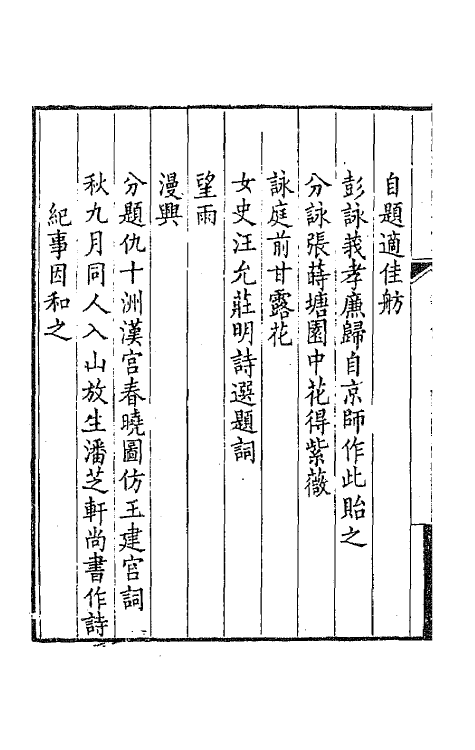 自題適佳舫
彭詠莪孝廉歸自京師作此貽之
分詠張蒔塘園中花得紫薇
詠庭前甘露花
女史汪允莊明詩選題詞
望雨
漫興
分題仇十洲漢宮春曉圖仿王建宮詞
秋九月同人入山放生潘芝軒尚書作詩
紀事因和之